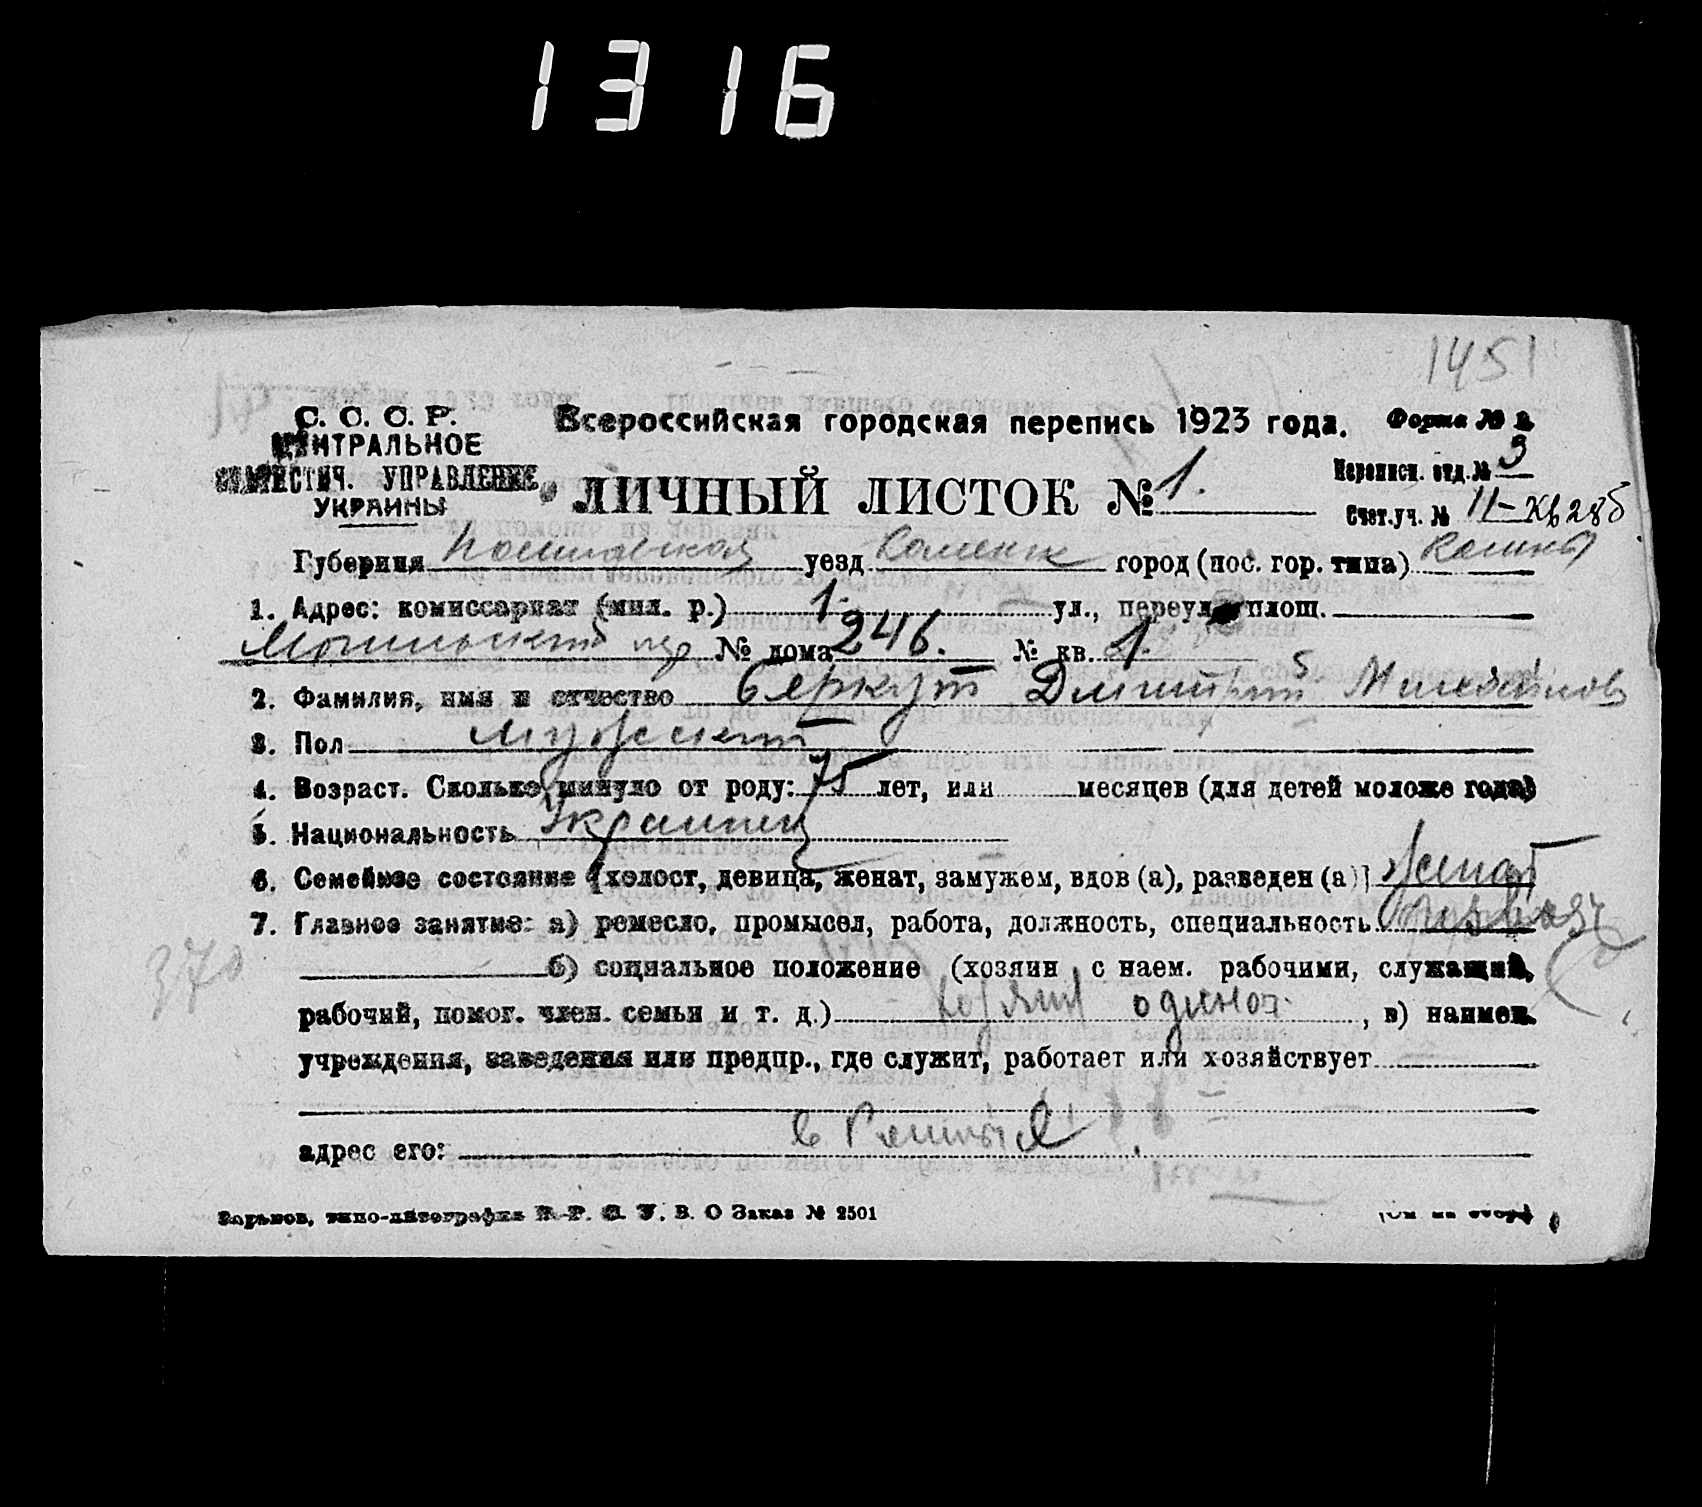 1316
1451
С. С. С. Р.
ЦЕНТРАЛЬНОЕ
СТАТИСТИЧ. УПРАВЛЕНИЕ
УКРАИНЫ
Всероссийская городская перепись 1923 года. Форма № 2
ЛИЧНЫЙ ЛИСТОК № 1.
Переписн. отд. № 3
Счет. уч. № 11-
Губерния Полтавская уезд город (пос. гор. типа)
1. Адрес: комиссариат (мил. р.) 1. ул., переул. площ.
№ дома 246. № кв. 1.
2. Фамилия, имя и отчество Беркут Дмитрий Михайлов
3. Пол мужский
4. Возраст. Сколько минуло от роду: 75 лет, или месяцев (для детей моложе года)
5. Национальность Украинец
6. Семейное состояние (холост, девица, женат, замужем, вдов (а), разведен (а)] женат
7. Главное занятие: а) ремесло, промысел, работа, должность, специальность
370 б) социальное положение (хозяин с наем. рабочими, служащий,
рабочий, помог. член. семьи и т. д.) хозяин одиноч. , в) наимен.
учреждения, заведения или предпр., где служит, работает или хозяйствует
адрес его:
Харьков, типо-литография В. О Заказ № 2501